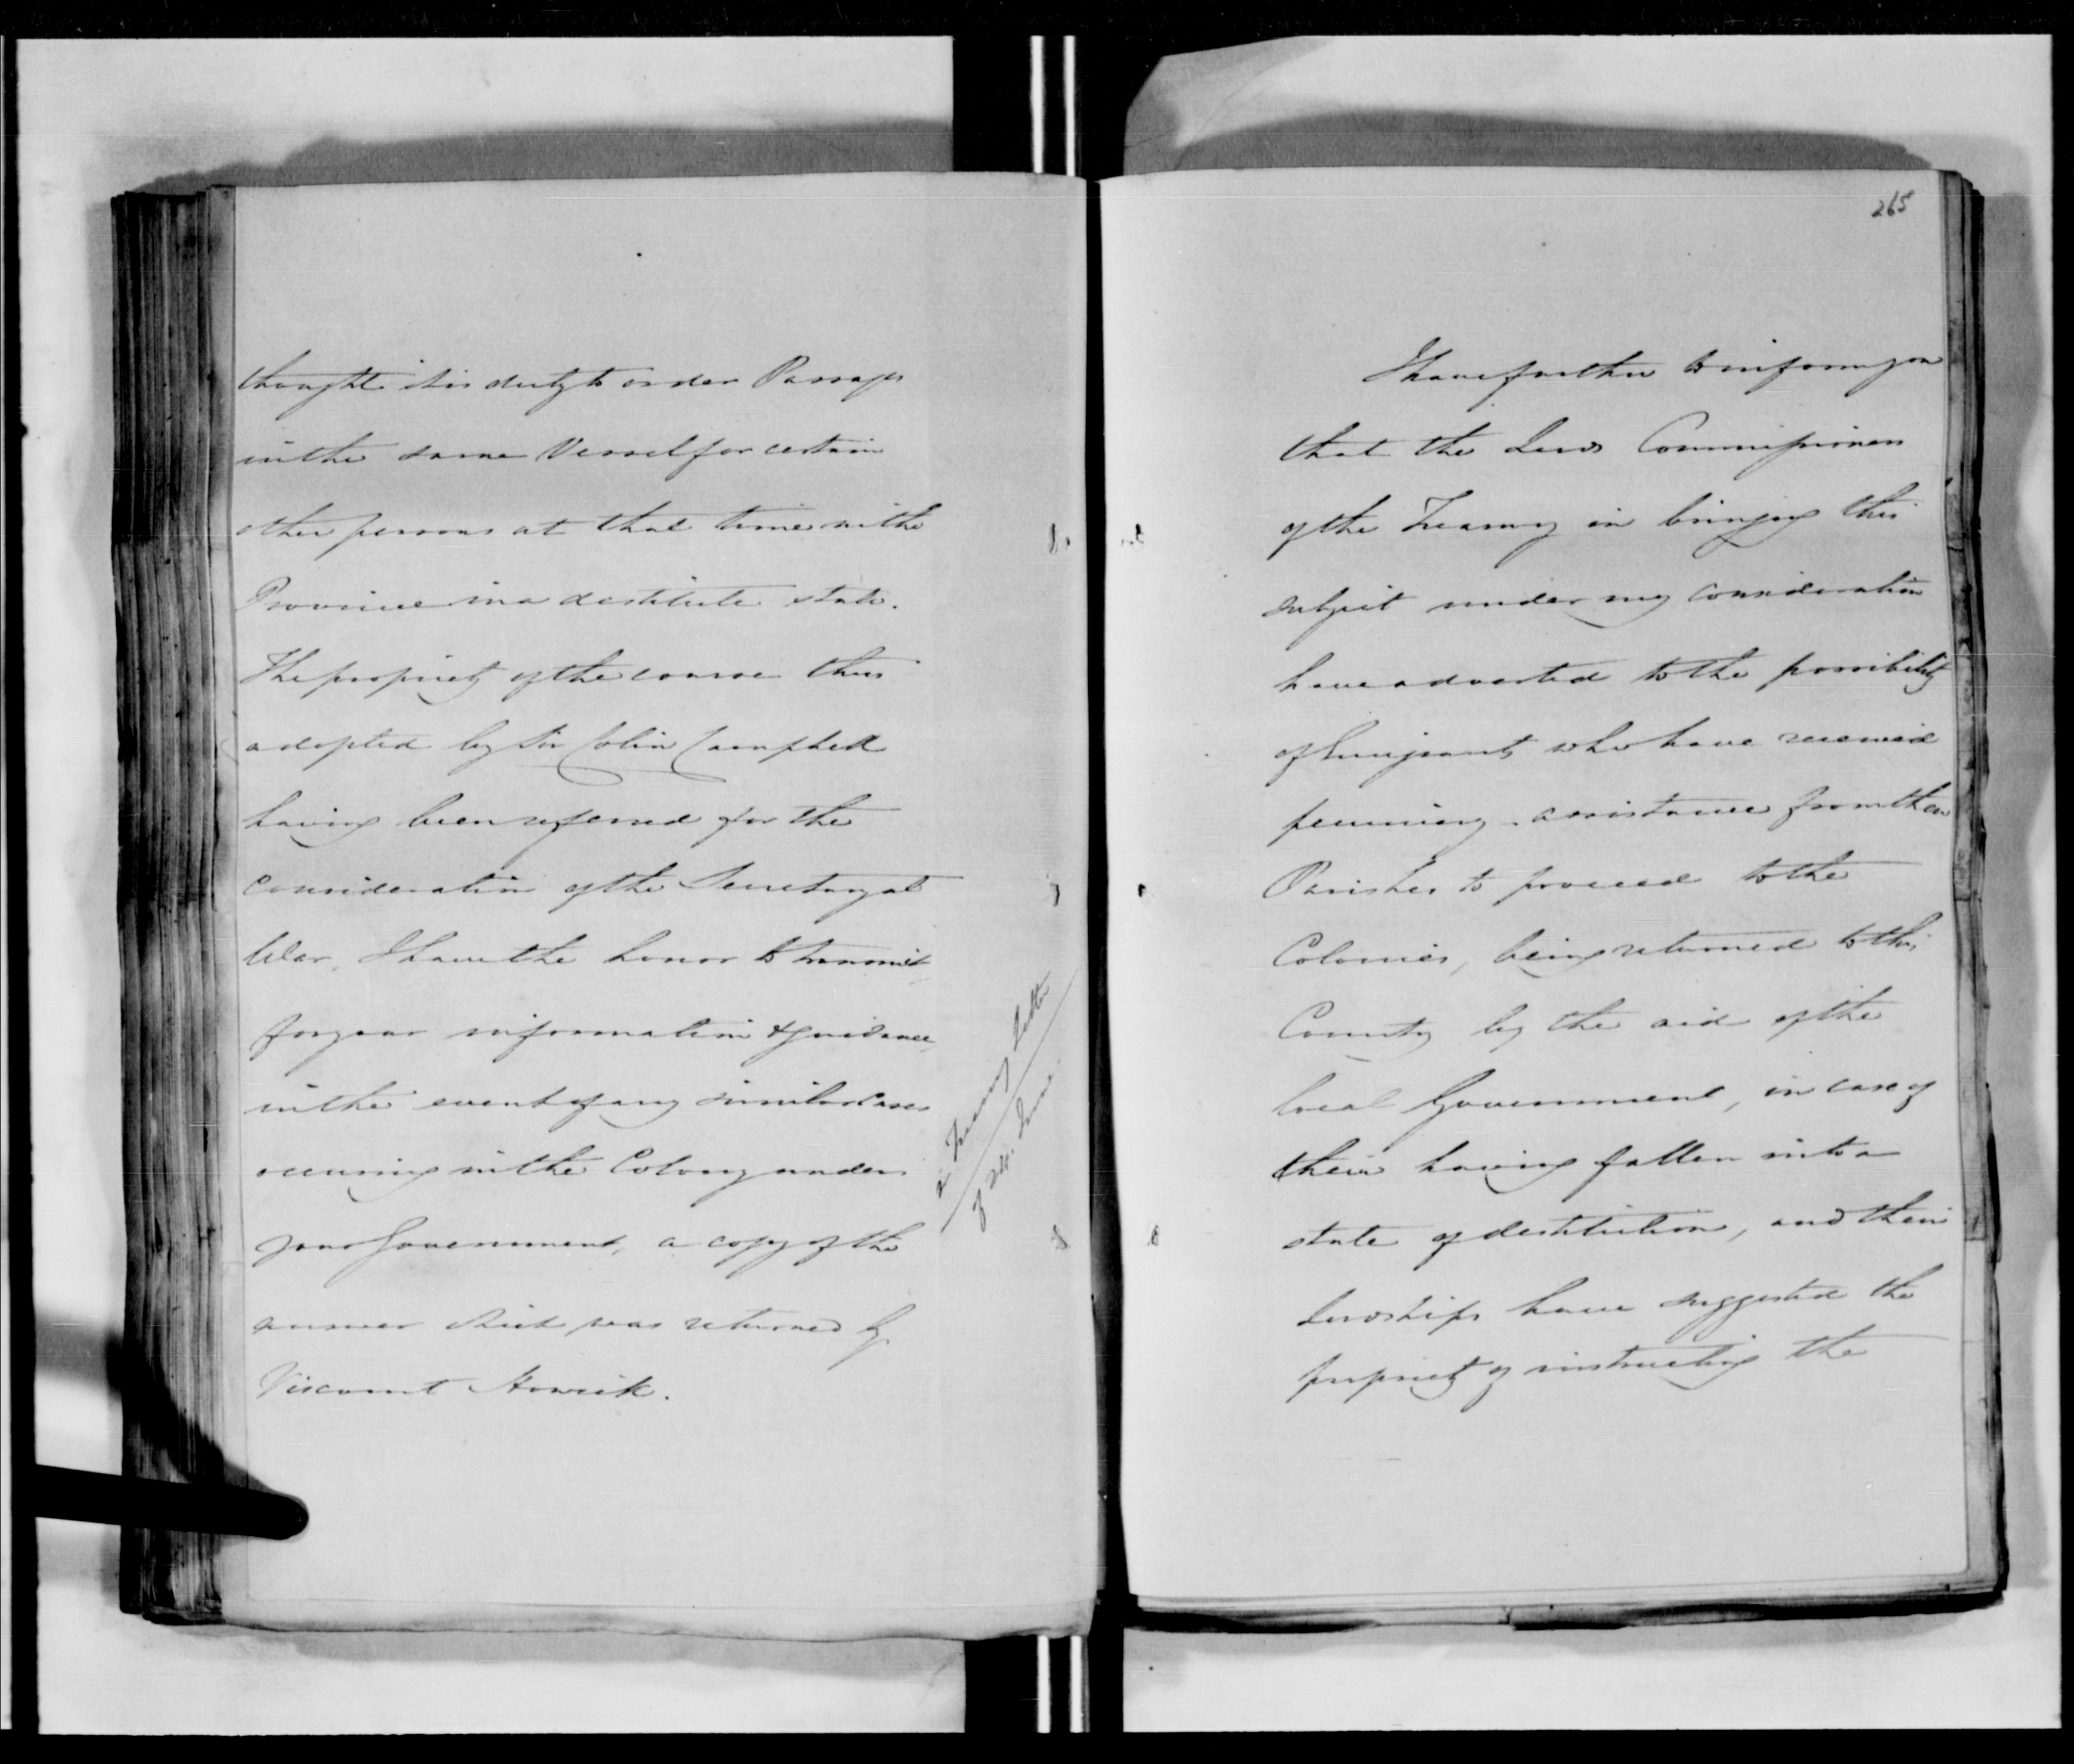 thought it his duty to order Passages
in the same Vessel for certain
other persons at that time in the
Province in a destitute state.
The propriety of the course thus
adopted by Sir Colin Campbell
having been referred for the
consideration of the Secretary at
War, I have the honor to transmit
for your information & guidance,
in the event of any similar Cases
occurring in the Colony under
your Government, a copy of the
answer which was returned by
Viscount Howick.
Treasury Letter
of 24. June
265
I have further to inform you
that the Lords Commissioners
of the Treasury in bringing this
subject under my consideration
have adverted to the possibility
of Emigrants who have received
pecuniary assistance from their
Parishes to proceed to the
Colonies, being returned to this
Country by the aid of the
local Government, in case of
their having fallen into a
state of destitution, and their
Lordships have suggested the
propriety of instructing the